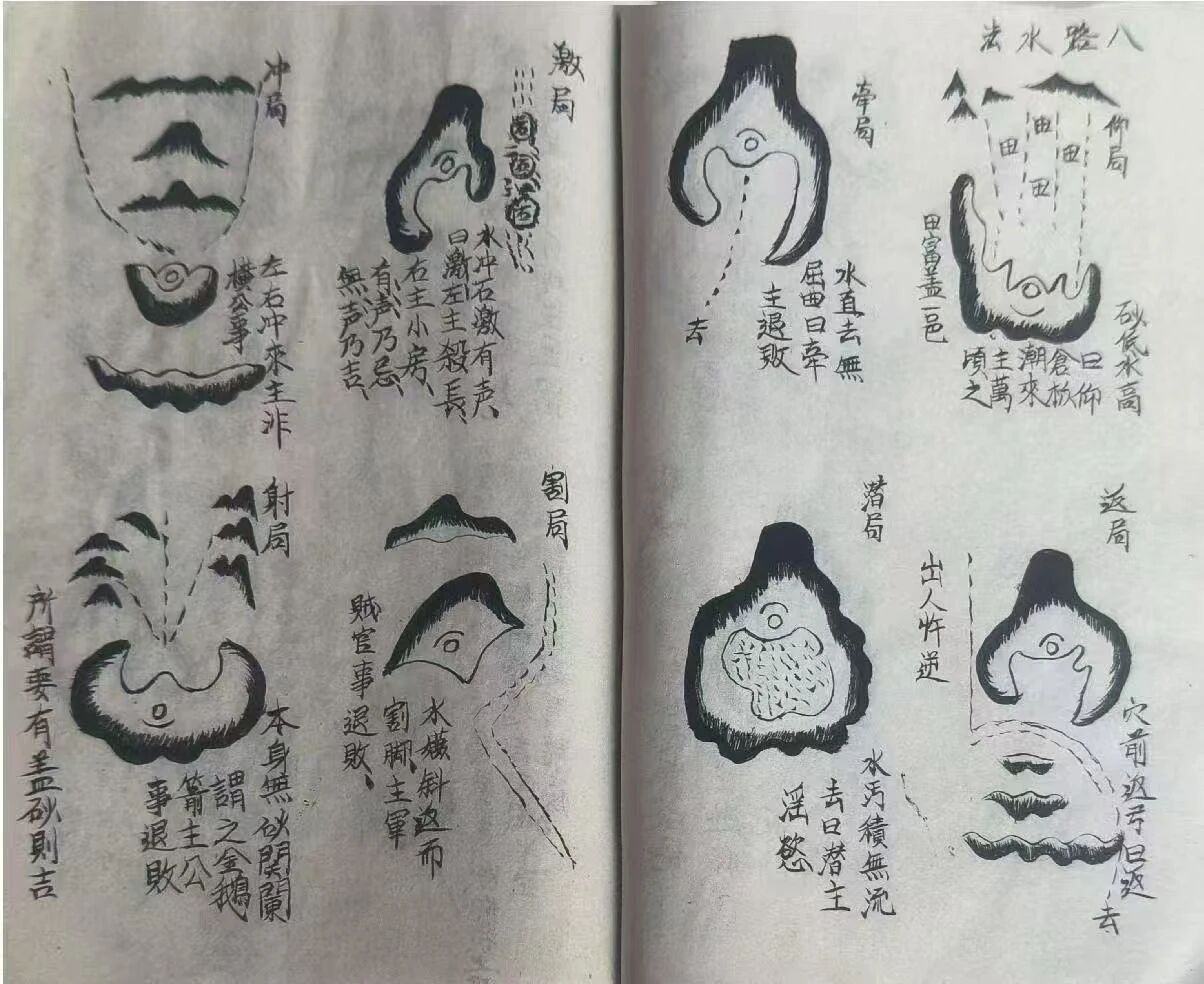 八路水法
仰局
田
田
田
田
砂低水高
曰仰
倉板
潮來
主萬
頃之
田富盖一邑
牵局
水直去無
屈曲曰牵
主退敗
去
返局
出人忤逆
穴前返弓曰返
去
潜局
水污積無流
去曰潜主
淫慾
激局
水冲石激有声、
曰激、左主殺長、
右主小房、
有声乃忌、
無声乃吉、
冲局
左右冲來主非
橫公事
割局
水橫斜返而
割脚、主軍
賊官事退敗、
射局
本身無砂関闌
謂之金鵝
箭主公
事退敗
所謂要有盖砂則吉